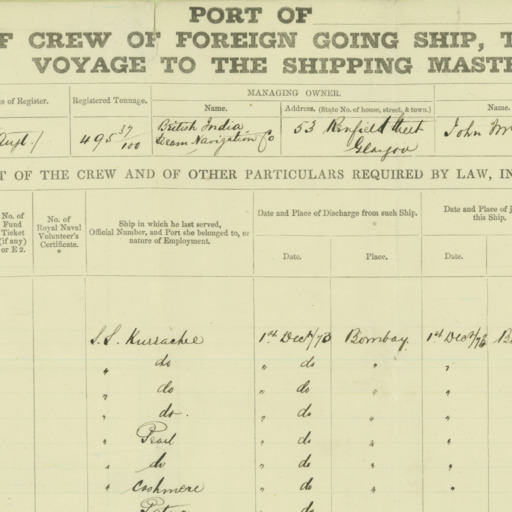 PORT OF
F CREW OF FOREIGN GOING SHIP, T
VOYAGE TO THE SHIPPING MASTE
s of Register.
Registered Tonnage.
MANAGING OWNER.
Name.
Address. (State No. of house, street, & town.)
Name.
495 37/100
British India
Steam Navigation Co
53 Renfield Street
Glasgow
John
T OF THE CREW AND OF OTHER PARTICULARS REQUIRED BY LAW, IN
No. of
Fund
Ticket
(if any)
or E 2.
No. of
Royal Naval
Volunteer's
Certificate.
*
Ship in which he last served,
Official Number, and Port she belonged to, or
nature of Employment.
Date and Place of Discharge from such Ship.
Date.
Place.
Date and Place of j
this Ship.
Date.
S.S. Kurrachee 1st Decr/73 Bombay 1st Decr/73 B
" do " do " "
" do " do " "
" do. " do " "
" Pearl " do " "
" do " do " "
" Cashmere " do " "
" Patna " do